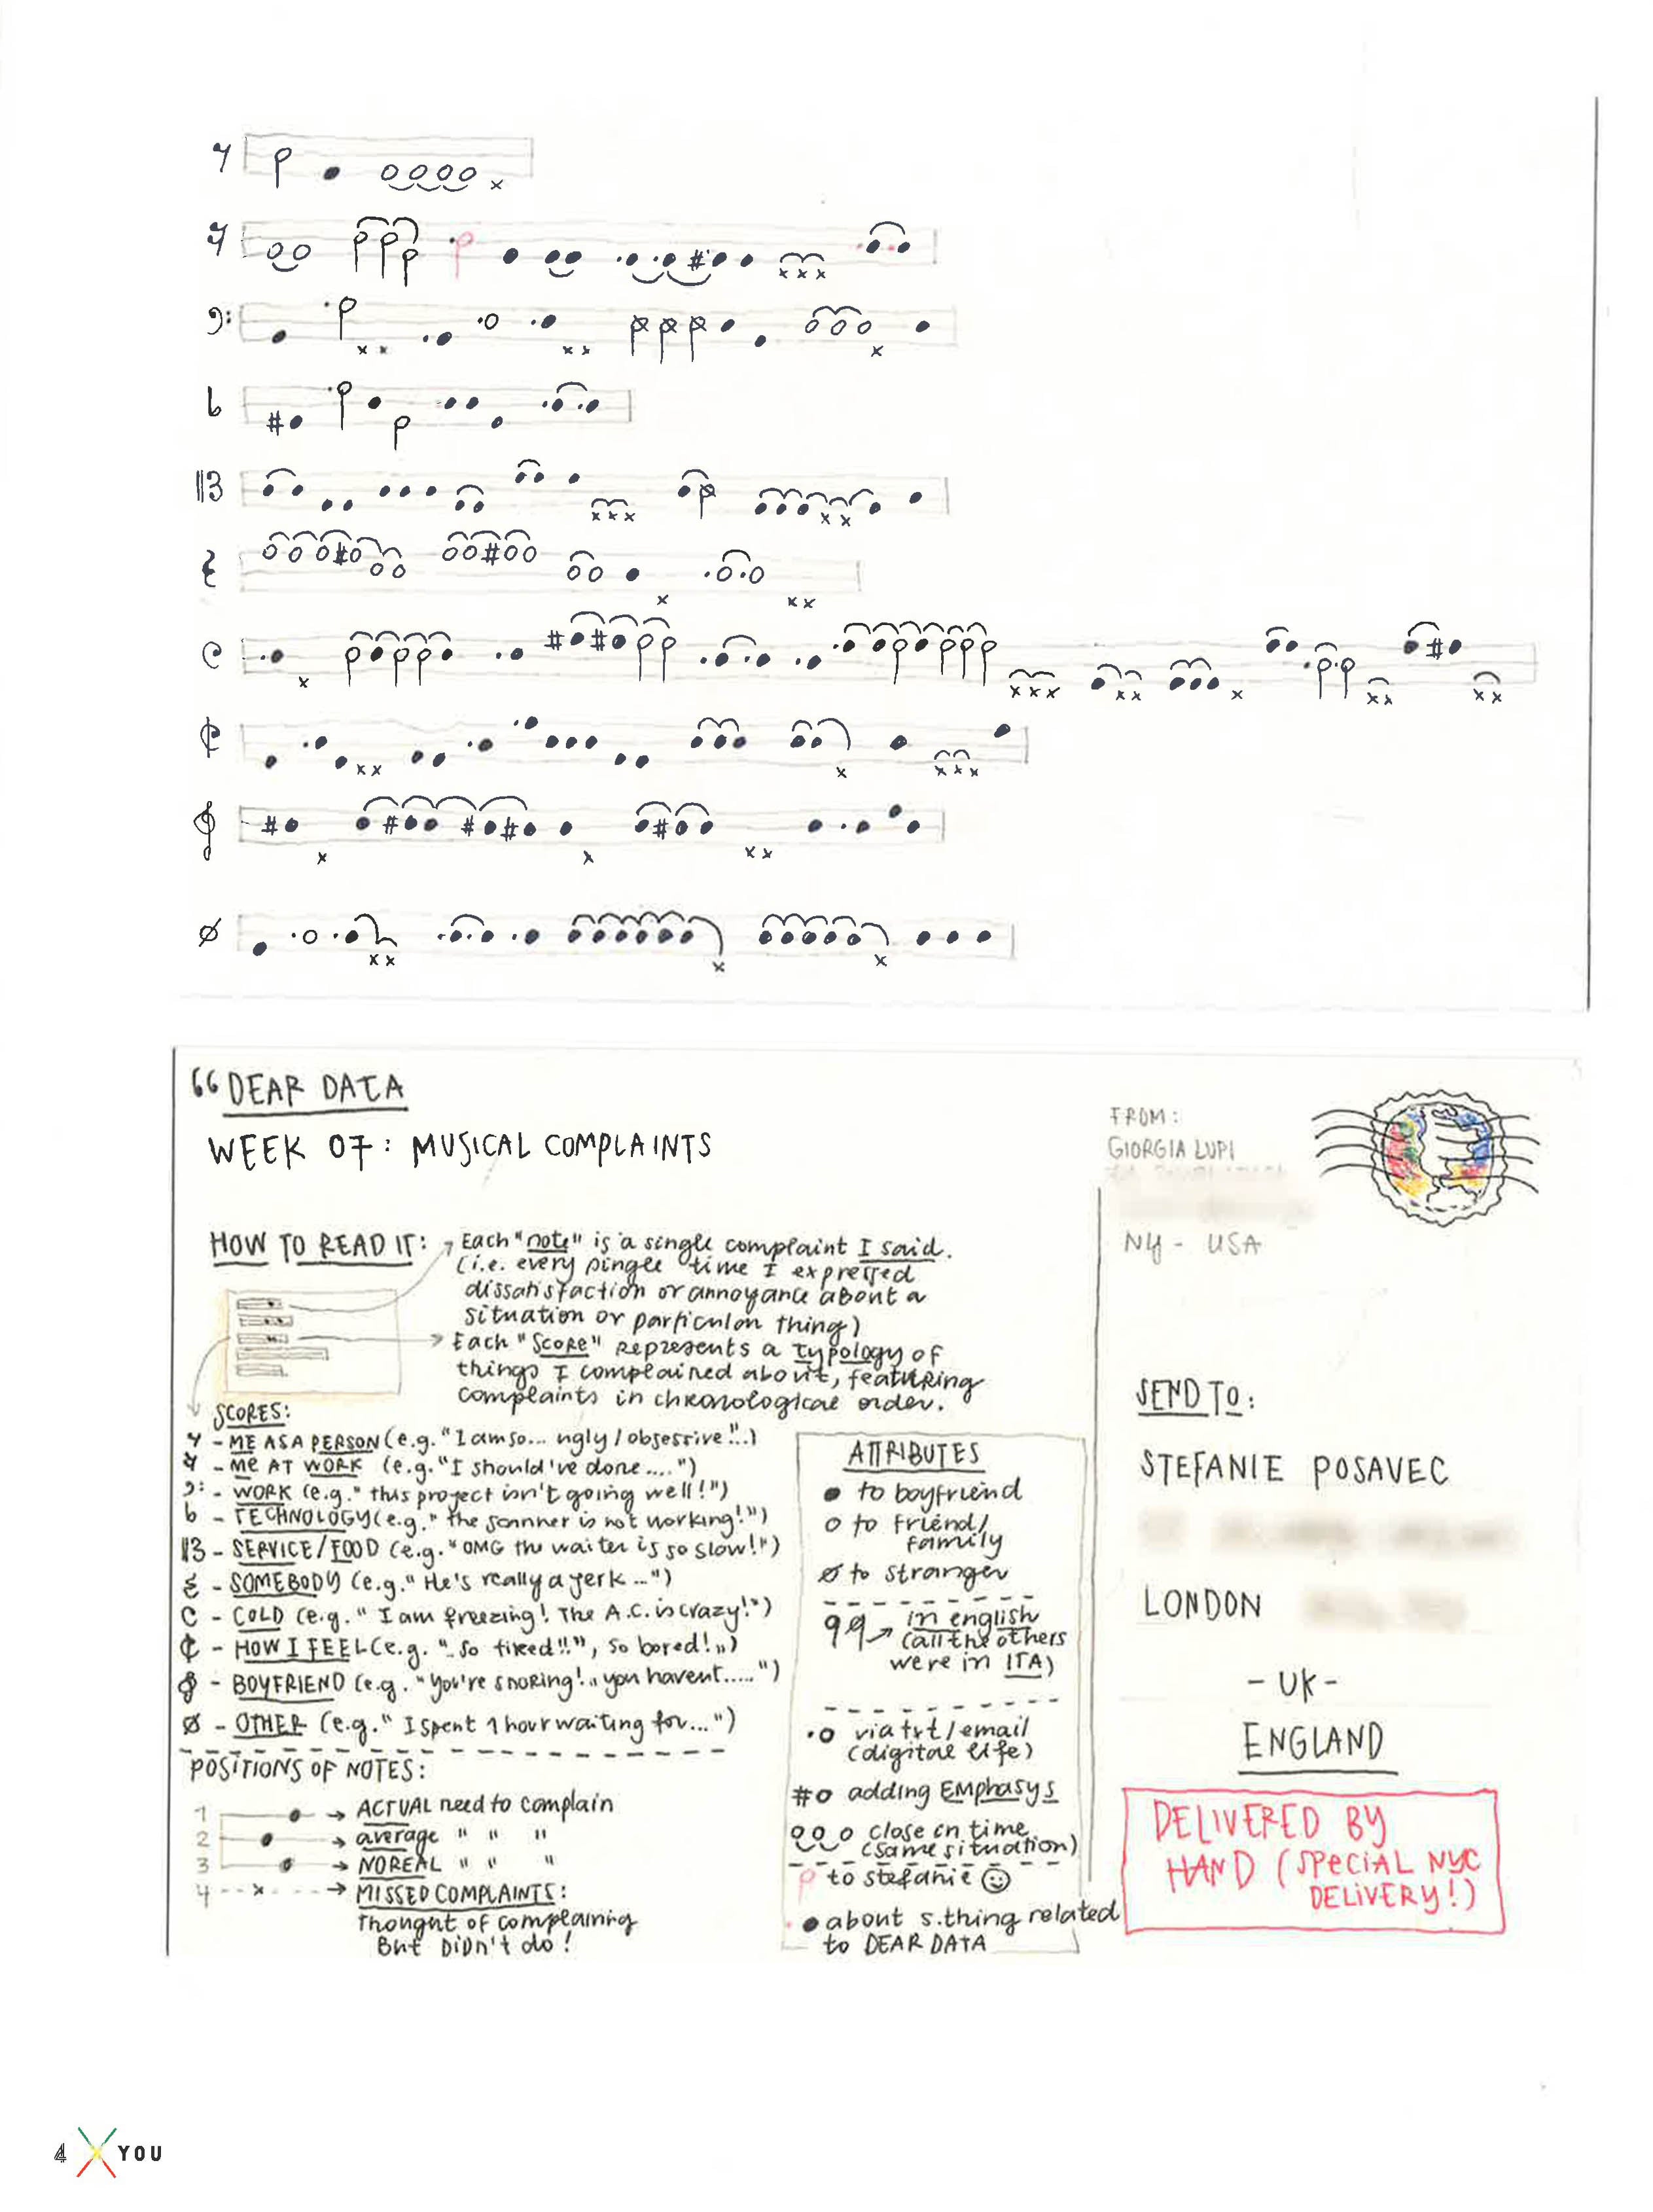 DEAR DATA
WEEK 07: MUSICAL COMPLAINTS
HOW TO READ IT:
Each "note" is a single complaint I said.
(i.e. every single time I expressed
dissatisfaction or annoyance about a
situation or particular thing)
Each "score" represents a typology of
things I complained about, featuring
complaints in chronological order.
SCORES:
- ME AS A PERSON (e.g. "I am so... ugly/obsessive!"..)
- ME AT WORK (e.g. "I should've done....")
- WORK (e.g. "this project isn't going well!")
- TECHNOLOGY (e.g. "the scannner is not working!")
- SERVICE/FOOD (e.g. "OMG the waiter is so slow!")
- SOMEBODY (e.g. "He's really a jerk...")
- COLD (e.g. "I am freezing! The A.C. is crazy!")
- HOW I FEEL (e.g. "..So tired!!", so bored!")
- BOYFRIEND (e.g. "You're snoring!.. you havent.....")
- OTHER (e.g. "I spent 1 hour waiting for...")
POSITIONS OF NOTES:
1 → ACTUAL need to complain
2 → average " " "
3 → NO REAL " " "
4 --x---→ MISSED COMPLAINTS:
thought of complaining
But DiDn't do!
ATTRIBUTES
to boyfriend
to friend/
family
to stranger
in english
(all the others
were in ITA)
via txt/email
(digital life)
# adding EMphasys
close in time
(same situation)
to stefanie ☺
about s.thing related
to DEAR DATA
FROM:
GIORGIA LUPI
NY - USA
SEND TO:
STEFANIE POSAVEC
LONDON
- UK -
ENGLAND
DELIVERED BY
HAND (SPECIAL NYC
DELIVERY!)
4 YOU